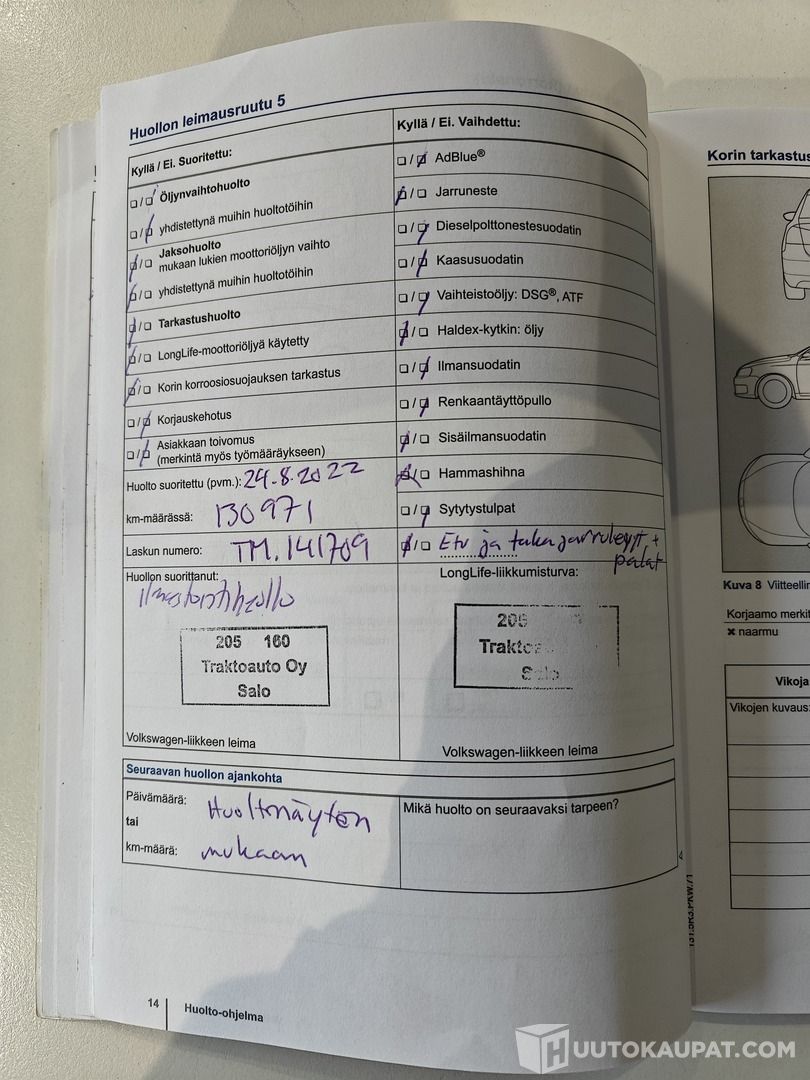 Huollon leimausruutu 5
Kyllä / Ei. Suoritettu:
❑/❑ Öljynvaihtohuolto
❑/❑ yhdistettynä muihin huoltotöihin
❑/❑ Jaksohuolto
mukaan lukien moottoriöljyn vaihto
❑/❑ yhdistettynä muihin huoltotöihin
❑/❑ Tarkastushuolto
❑/❑ LongLife-moottoriöljyä käytetty
❑/❑ Korin korroosiosuojauksen tarkastus
❑/❑ Korjauskehotus
❑/❑ Asiakkaan toivomus
(merkintä myös työmääräykseen)
Huolto suoritettu (pvm.): 24.8.2022
km-määrässä: 130971
Laskun numero: TM.141709
Huollon suorittanut:
205 160
Traktoauto Oy
Salo
Volkswagen-liikkeen leima
Kyllä / Ei. Vaihdettu:
❑/❑ AdBlue®
❑/❑ Jarruneste
❑/❑ Dieselpolttonestesuodatin
❑/❑ Kaasusuodatin
❑/❑ Vaihteistoöljy: DSG®, ATF
❑/❑ Haldex-kytkin: öljy
❑/❑ Ilmansuodatin
❑/❑ Renkaantäyttöpullo
❑/❑ Sisäilmansuodatin
❑/❑ Hammashihna
❑/❑ Sytytystulpat
❑/❑ Etu ja takajarrulevyt +
palat
LongLife-liikkumisturva:
Volkswagen-liikkeen leima
Seuraavan huollon ajankohta
Päivämäärä: Huoltonäytön
tai
km-määrä: mukaan
Mikä huolto on seuraavaksi tarpeen?
14 Huolto-ohjelma
Korin tarkastus
Kuva 8 Viitteellin
Korjaamo merkit
✖ naarmu
Vikoja
Vikojen kuvaus:
131.5R3.PKW.71
HUUTOKAUPAT.COM